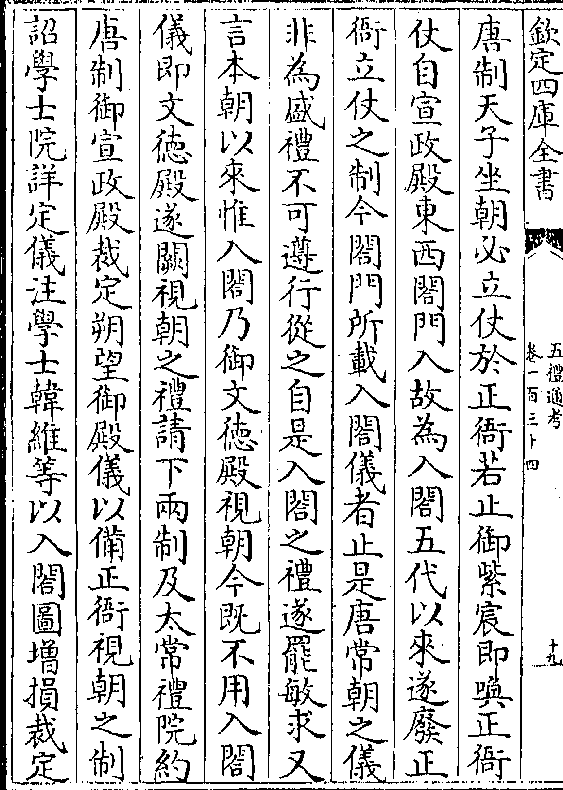 欽定四庫全書
五禮通考
卷一百三十四
十九
唐制天子坐朝必立仗於正衙若止御紫宸即喚正衙
仗自宣政殿東西閤門入故為入閤五代以來遂廢正
衙立仗之制今閤門所載入閤儀者止是唐常朝之儀
非為盛禮不可遵行從之自是入閤之禮遂罷敏求又
言本朝以來惟入閤乃御文徳殿視朝今既不用入閤
儀即文徳殿遂闕視朝之禮請下兩制及太常禮院約
唐制御宣政殿裁定朔望御殿儀以備正衙視朝之制
詔學士院詳定儀注學士韓維等以入閤圖增損裁定